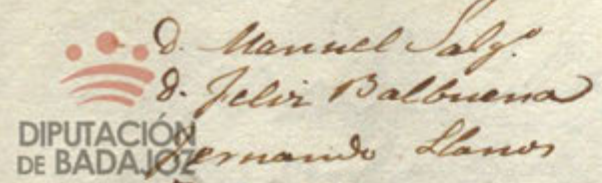 D. Manuel Salg.º
D. Felix Balbuena
Fernando Llanos
DIPUTACIÓN
DE BADAJOZ